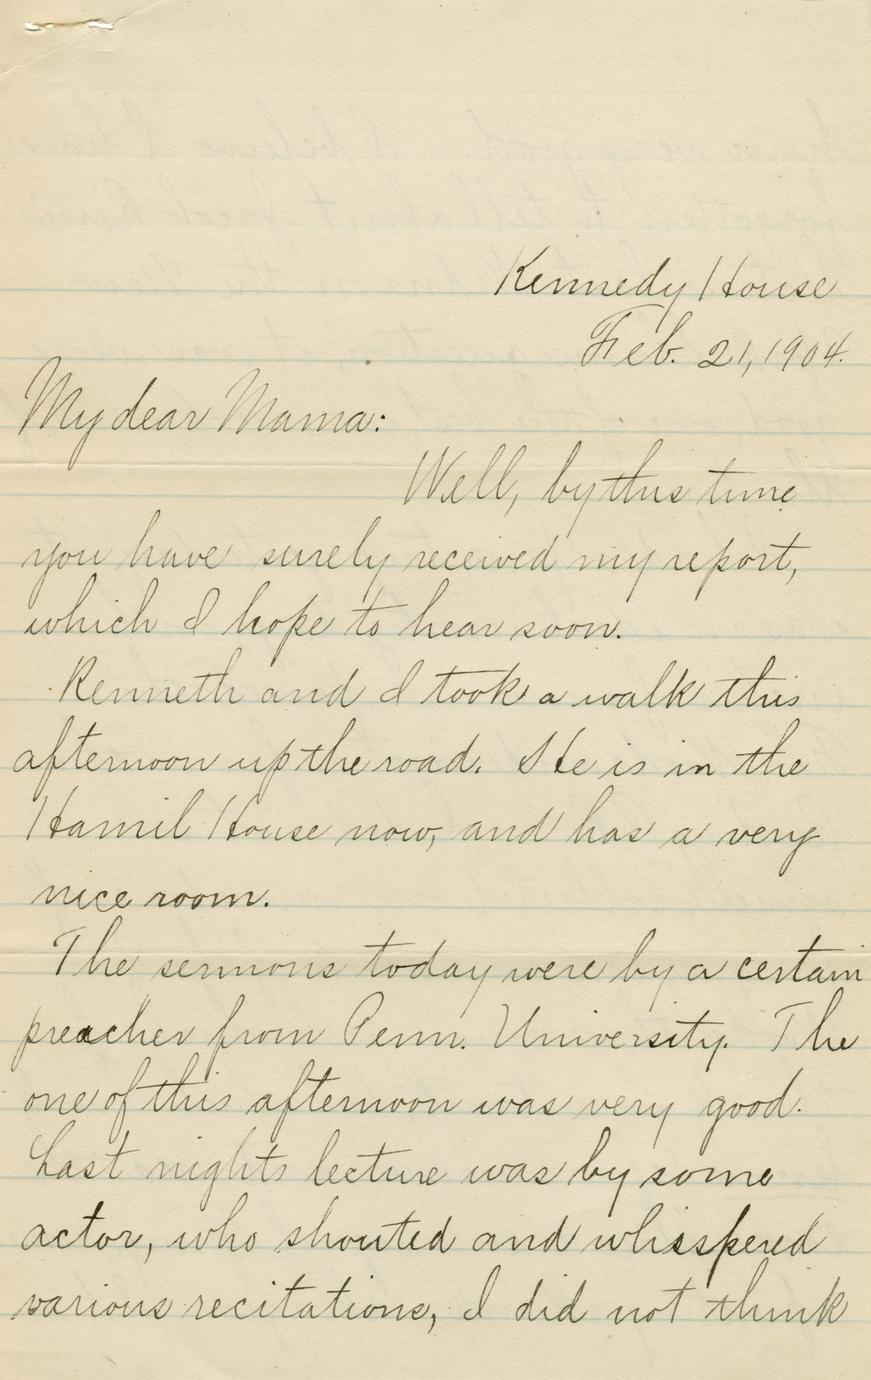 Kennedy House
Feb. 21, 1904.
My dear Mama:
Well, by this time
you have surely received my report,
which I hope to hear soon.
Kenneth and I took a walk this
afternoon up the road. He is in the
Hamil House now, and has a very
nice room.
The sermons today were by a certain
preacher from Penn. University. The
one of this afternoon was very good.
Last nights lecture was by some
actor, who shouted and whisspered
various recitations, I did not think